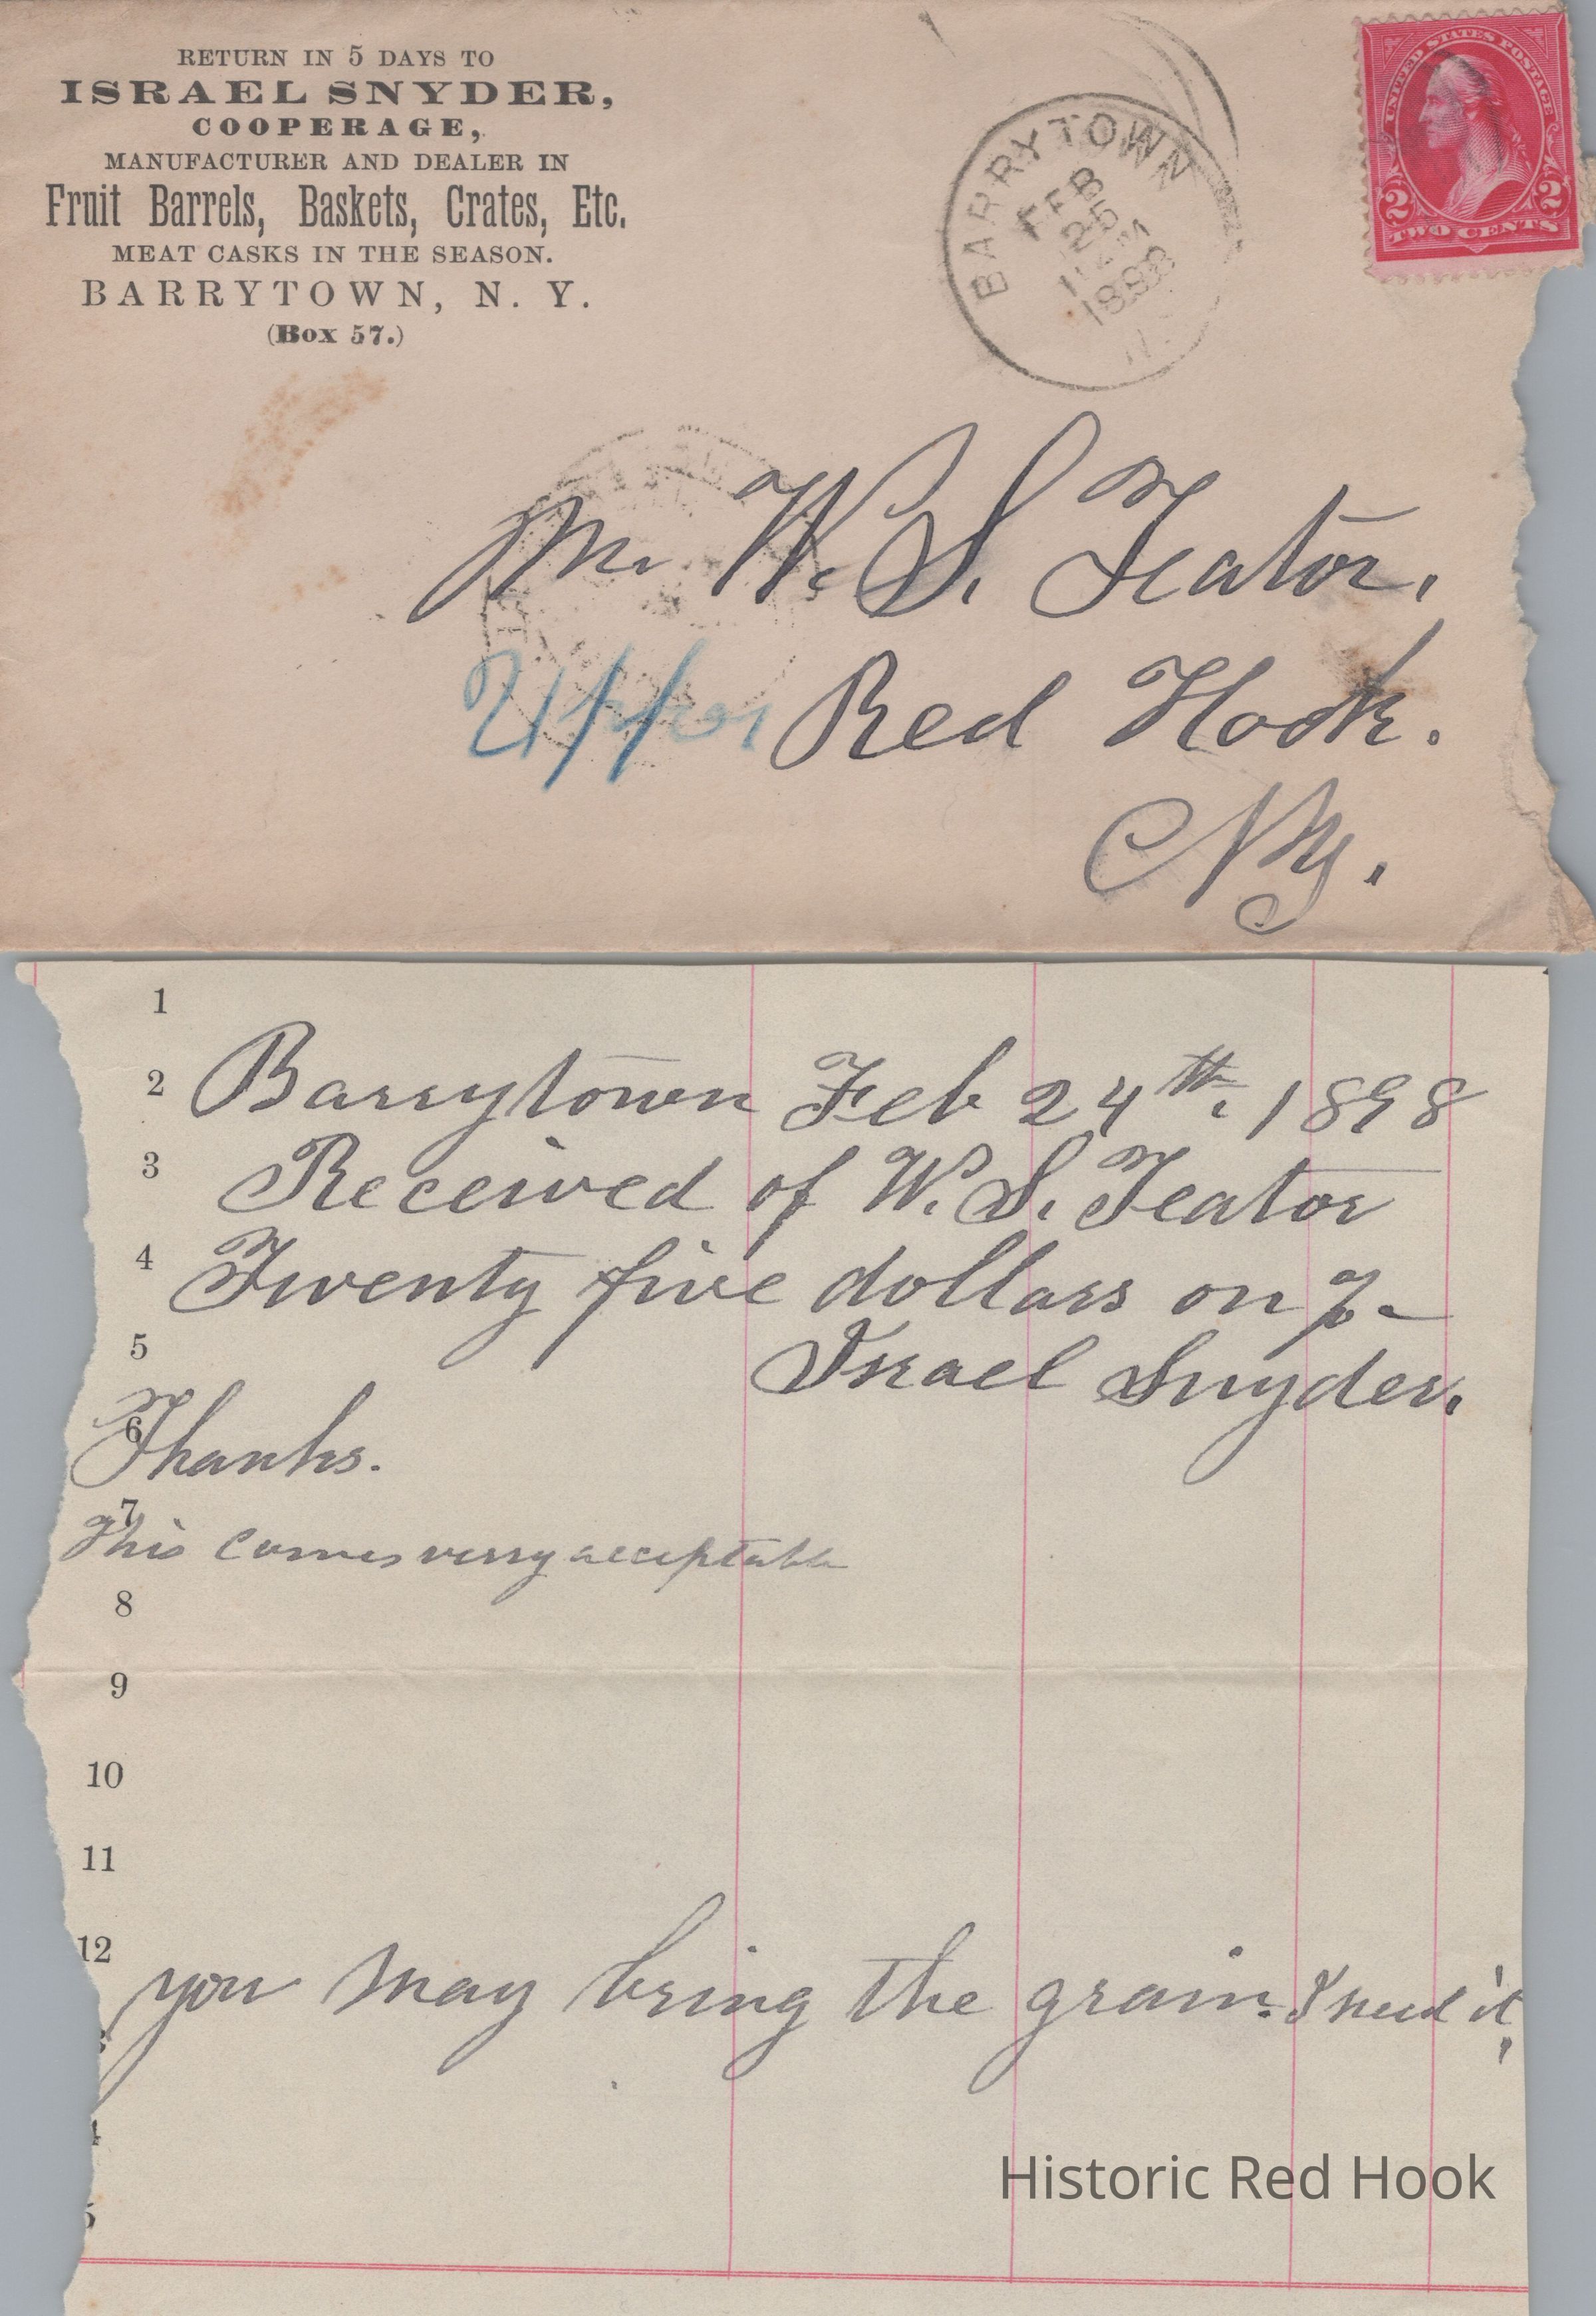 RETURN IN 5 DAYS TO
ISRAEL SNYDER,
COOPERAGE,
MANUFACTURER AND DEALER IN
Fruit Barrels, Baskets, Crates, Etc.
MEAT CASKS IN THE SEASON.
BARRYTOWN, N. Y.
(Box 57.)
BARRYTOWN
FEB
25
1898
UNITED STATES POSTAGE
2 2
TWO CENTS
Mr W. S. Teator.
Upper Red Hook.
NY.
1
2 Barrytown Feb 24th. 1898
3 Received of W. S. Teator
4 Twenty five dollars on
5 Israel Snyder.
6 Thanks.
7 This comes verry acceptable
8
9
10
11
12
you may bring the grain. I need it.
Historic Red Hook